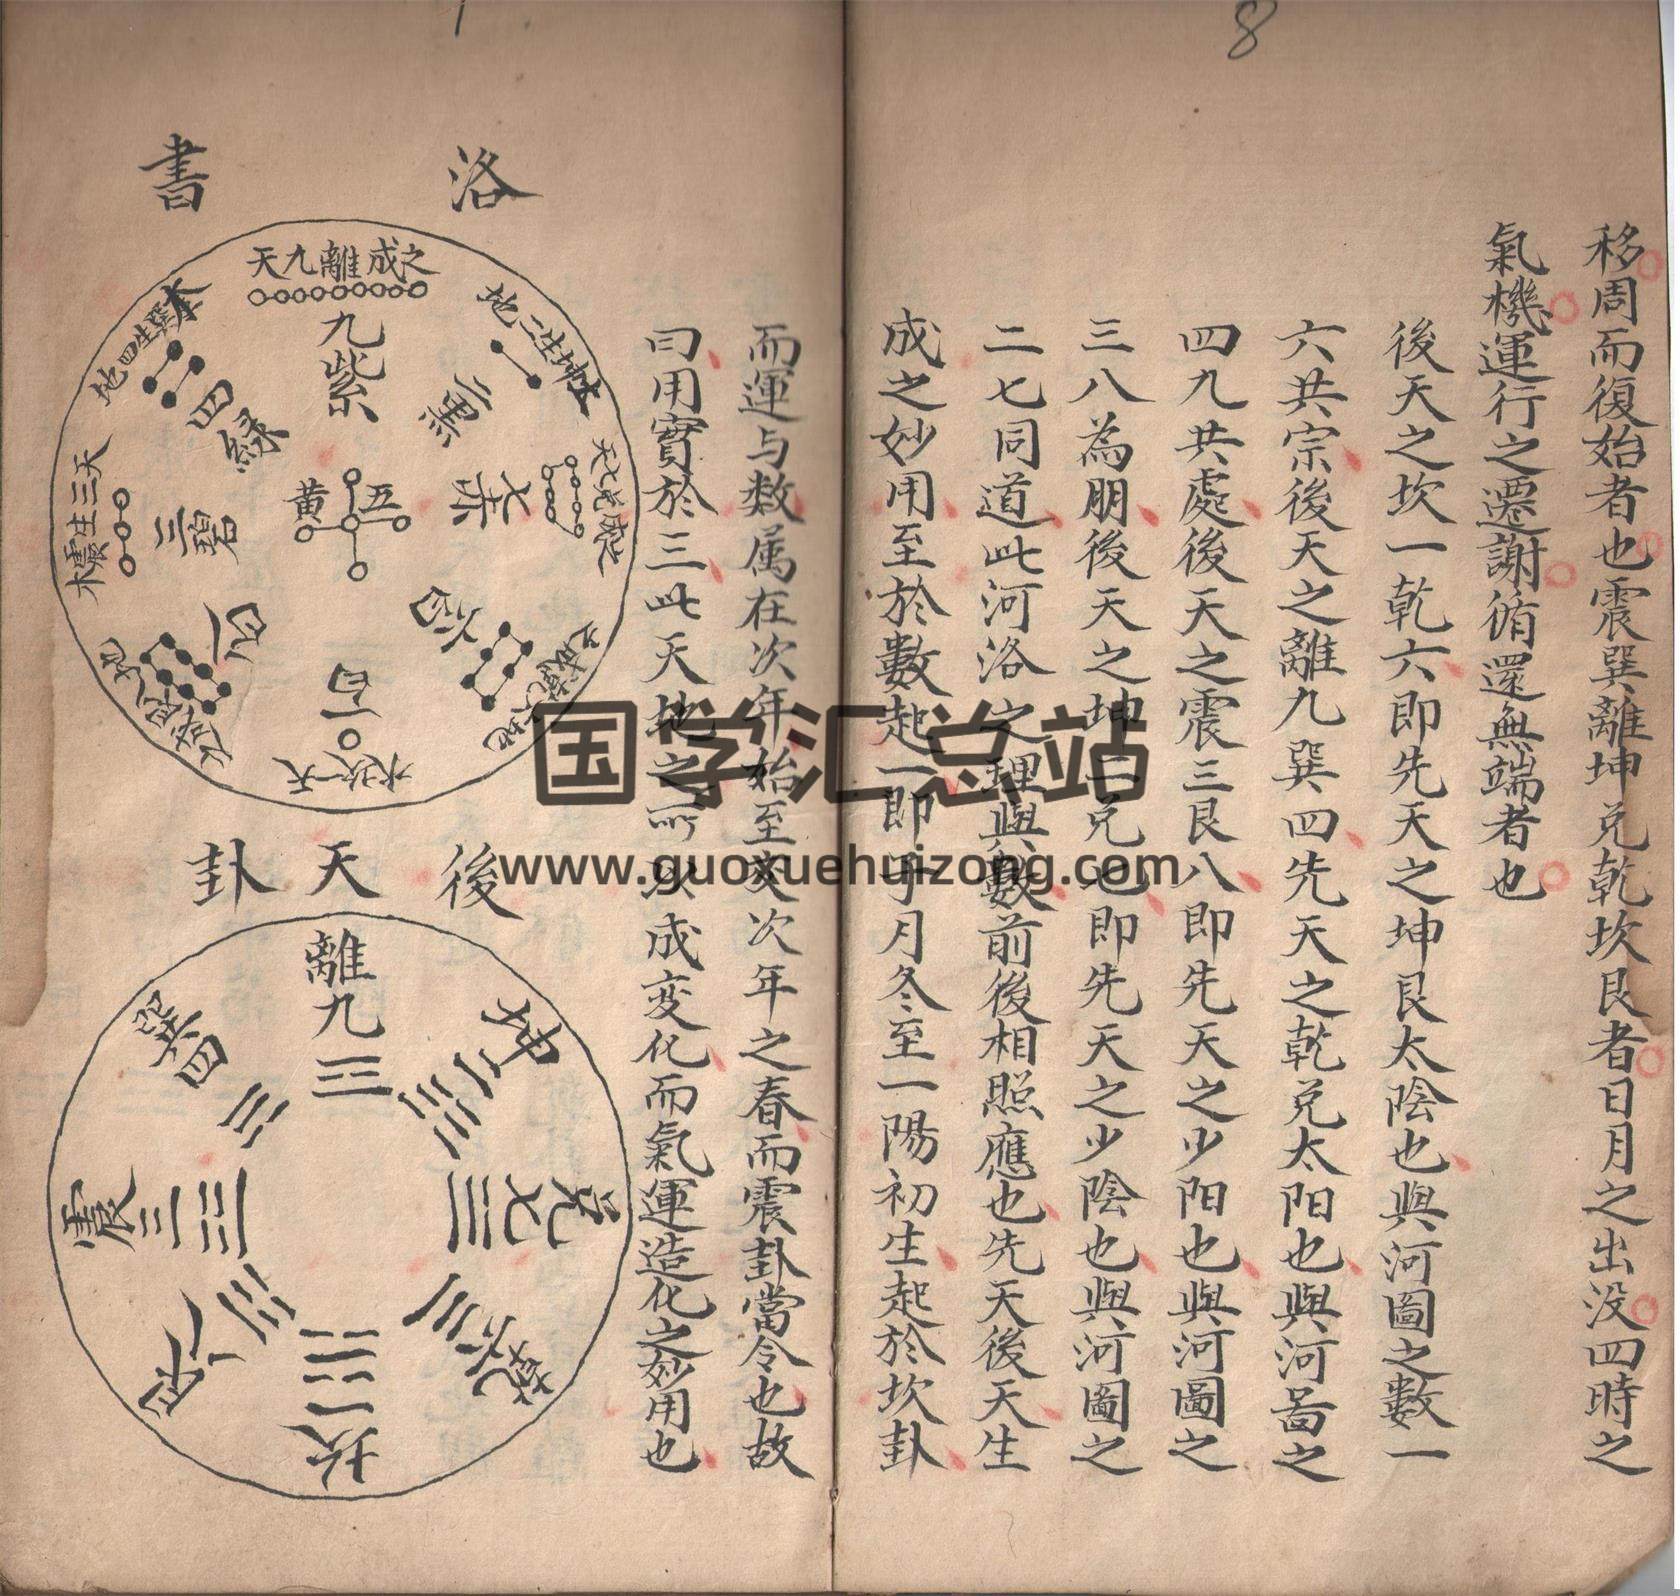 8
移周而復始者也震巽離坤兌乾坎艮者日月之出没四時之
氣機運行之遷謝循還無端者也
後天之坎一乾六即先天之坤艮太陰也與河圖之數一
六共宗後天之離九巽四先天之乾兌太阳也與河啚之
四九共處後天之震三艮八即先天之少阳也與河圖之
三八為朋後天之坤二兑七即先天之少陰也與河圖之
二七同道此河洛之理與數前後相照應也先天後天生
成之妙用至於數起一即子月冬至一陽初生起於坎卦
而運与数属在次年始至交次年之春而震卦當令也故
曰用實於三此天地之所以成变化而氣運造化之妙用也
洛書
天九離成之
九紫
地二生坤
二黑
天七兌成之
七赤
六白
水坎一天
一白
八白
木震生三天
三碧
地四生巽木
四緑
五黄
後天卦
離九
坤二
兌七
乾六
坎一
艮八
震三
巽四
国学汇总站
www.guoxuehuizong.com